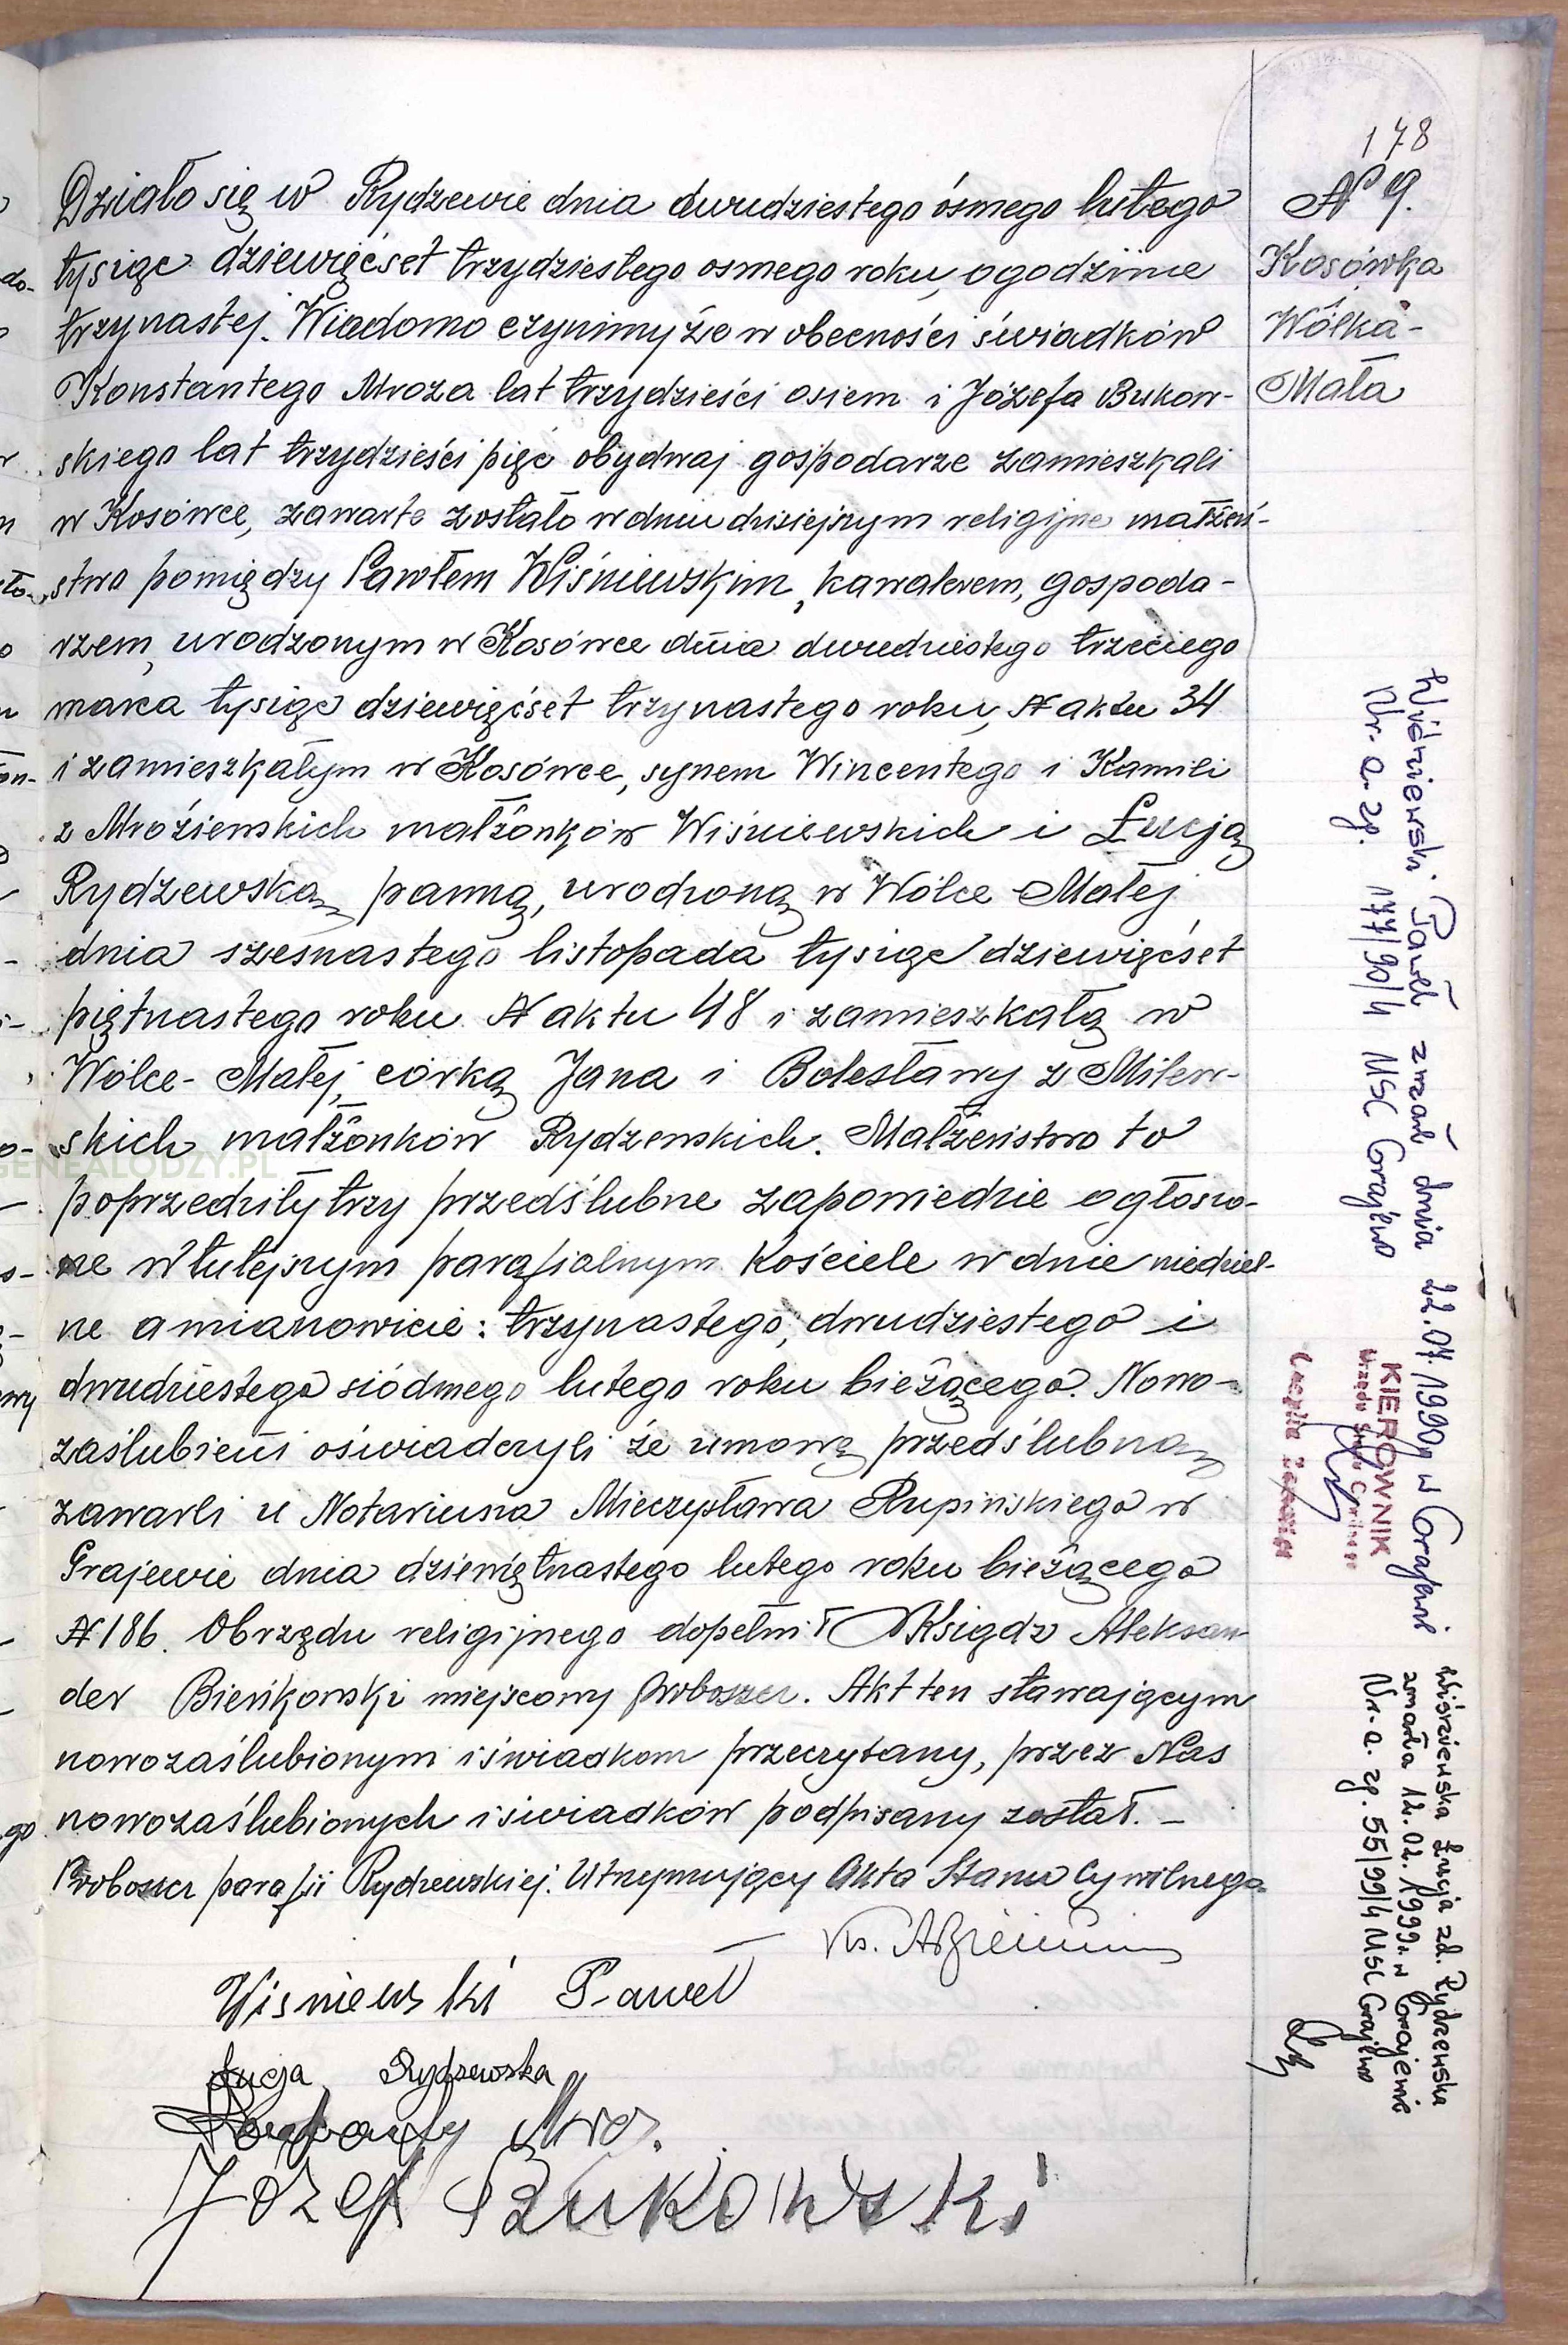 178
N 9.
Kosówka
Wólka-
Mała
Działo się w Rydzewie dnia dwudziestego ósmego lutego
tysiąc dziewięćset trzydziestego osmego roku, ogodzinie
trzynastej. Wiadomo czynimy że w obecności świadków
Konstantego Mroza lat trzydzieści osiem i Józefa Bukow-
skiego lat trzydzieści pięć obydwaj gospodarze zamieszkali
w Kosówce, zawarte zostało w dniu dzisiejszym religijne małżeń-
stwo pomiędzy Pawłem Wiśniewskim, kawalerem, gospoda-
rzem, urodzonym w Kosówce dnia dwudziestego trzeciego
marca tysiąc dziewięćset trzynastego roku, N aktu 34
i zamieszkałym w Kosówce, synem Wincentego i Kamili
z Mroziewskich małżonków Wiśniewskich i Łucją
Rydzewską, panną, urodzoną w Wólce Małej
dnia szesnastego listopada tysiąc dziewięćset
piętnastego roku N aktu 48 i zamieszkałą w
Wólce-Małej, córką Jana i Bolesławy z Milew-
skich małżonków Rydzewskich. Małżeństwo to
poprzedziły trzy przedślubne zapowiedzie ogłoszo-
ne w tutejszym parafialnym Kościele w dnie niedziel-
ne a mianowicie: trzynastego, dwudziestego i
dwudziestego siódmego lutego roku bieżącego. Nowo-
zaślubieni oświadczyli że umowę przedślubną
zawarli u Notariusza Mieczysława Rupińskiego w
Grajewie dnia dziewiętnastego lutego roku bieżącego
N 186. Obrzędu religijnego dopełnił Ksiądz Aleksan
der Bieńkowski miejscowy proboszcz. Akt ten stawającym
nowozaślubionym i świadkom przeczytany, przez Nas
nowozaślubionych i świadków podpisany został. -
Proboszcz parafii Rydzewskiej. Utrzymujący Akta Stanu Cywilnego.
Ks.
Wisniewski Paweł
Łucja Rydzewska
Mroz.
Józef Bukowski
Wiśniewski Paweł zmarł dnia 22.07.1990r w Grajewie
Nr. a. zg. 177/90/4 USC Grajewo
KIEROWNIK
Urzędu Stanu Cywilnego
Wiśniewska Łucja zd. Rydzewska
zmarła 12.02.1999r. w Grajewie
Nr. a. zg. 55/99/4 USC Grajewo
GENEALODZY.PL